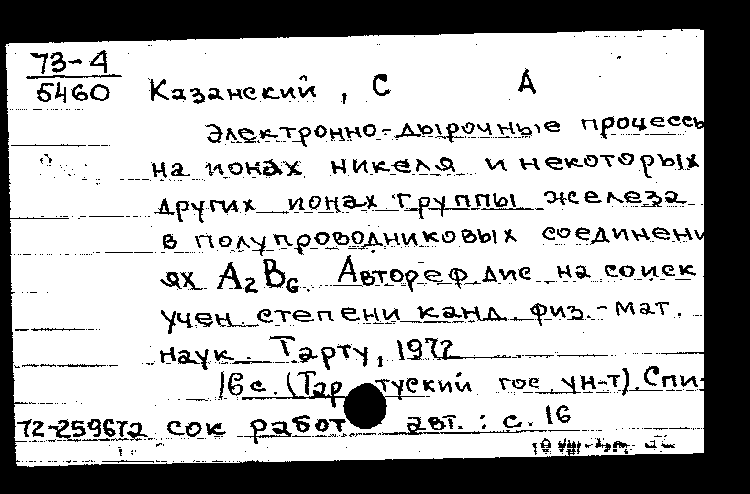 73-4
5460 Казанский, С А
Электронно-дырочные процессы
на ионах никеля и некоторых
других ионах группы железа
в полупроводниковых соединени
ях A2B6. Автореф. дис. на соиск
учен. степени канд. физ.-мат.
наук. Тарту, 1972
16 с. (Тартуский гос. ун-т). Спи-
72-259672 сок работ авт.: с. 16